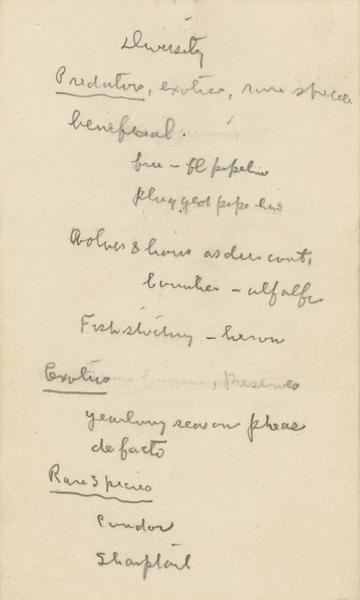 Diversity
Predators, exotics, rare species
beneficial.
free - fl pipeline
plugged pipe line
Wolves & lions as deer cont.
Counties - alfalfa
Fish stocking - heron
Exotics, preserves
yearlong season pheas
de facto
Rare Species
Condor
Sharptail